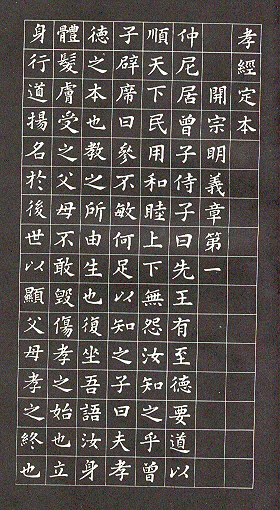 孝經定本
開宗明義章第一
仲尼居曾子侍子曰先王有至德要道以
順天下民用和睦上下無怨汝知之乎曾
子辟席曰參不敏何足以知之子曰夫孝
德之本也教之所由生也復坐吾語汝身
體髮膚受之父母不敢毀傷孝之始也立
身行道揚名於後世以顯父母孝之終也